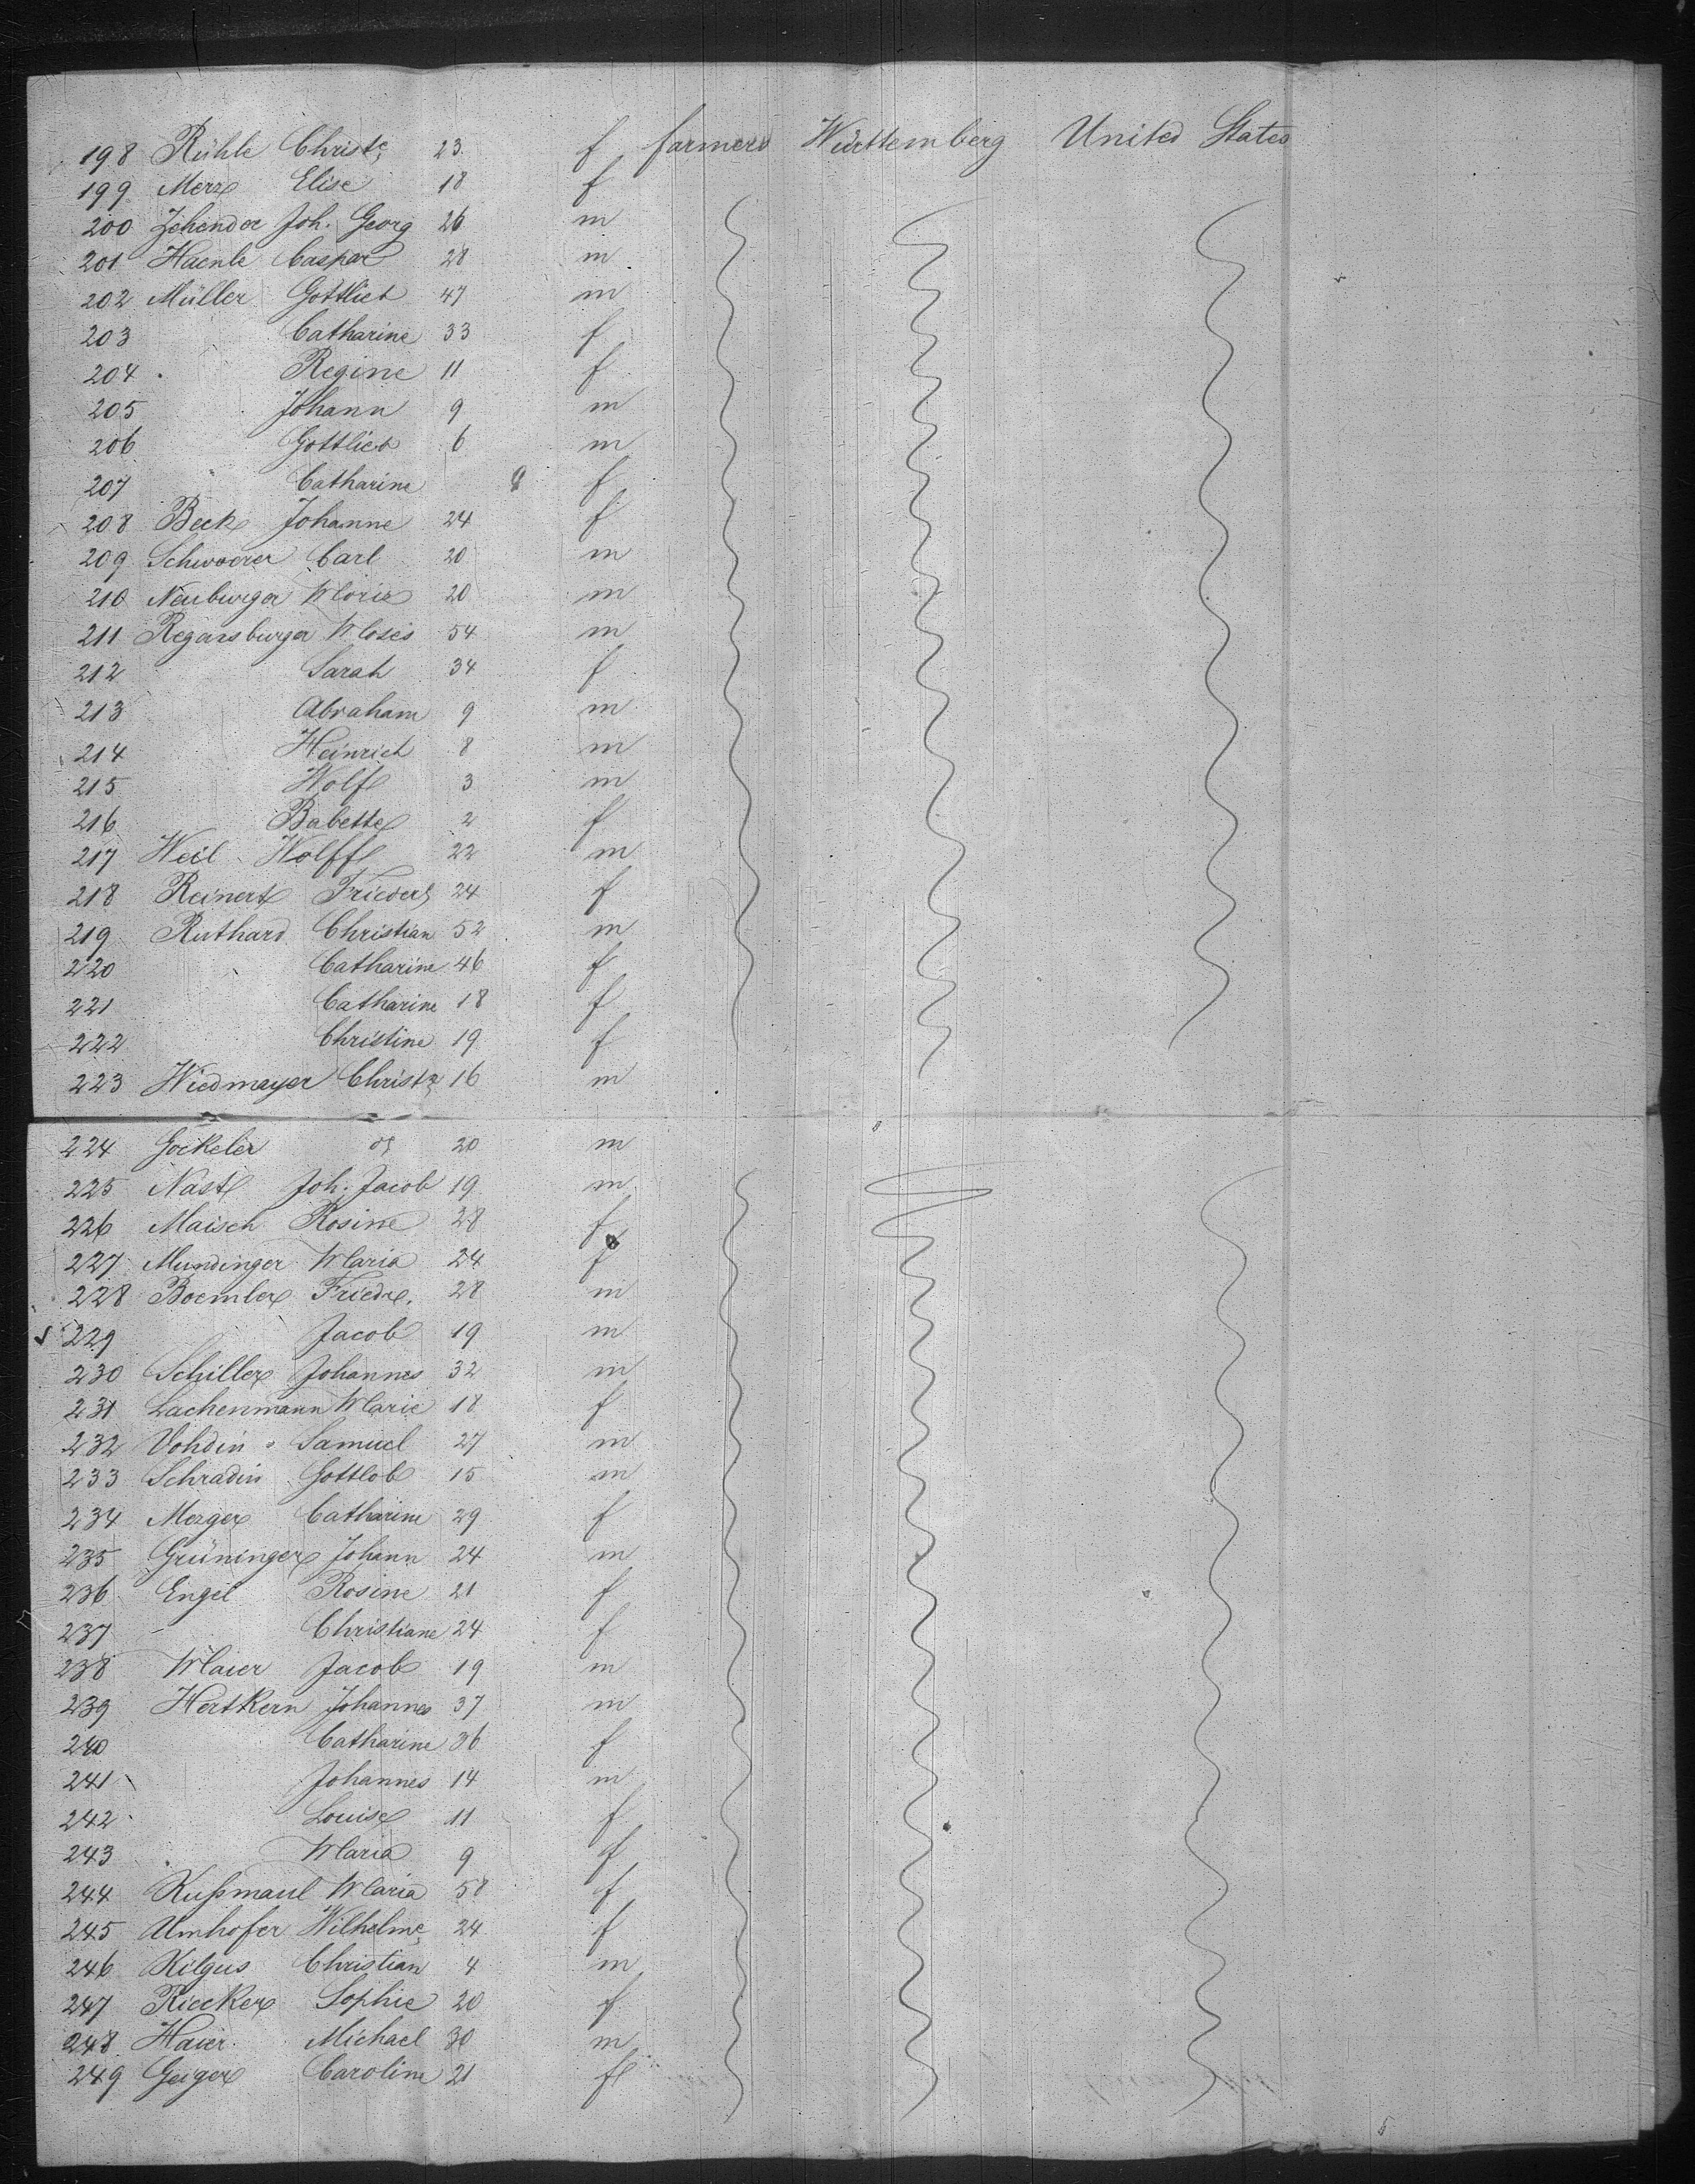 198 Rühle Christe 23 f farmers Württemberg United States
199 Merz Elise 18 f
200 Zehender Joh. Georg 26 m
201 Haenle Caspar 28 m
202 Müller Gottlieb 47 m
203 Catharine 33 f
204 Regine 11 f
205 Johann 9 m
206 Gottlieb 6 m
207 Catharine f
208 Beck Johanne 24 f
209 Schwoerer Carl 20 m
210 Neuburger Moriz 20 m
211 Regansburger Moses 54 m
212 Sarah 34 f
213 Abraham 9 m
214 Heinrich 8 m
215 Wolf 3 m
216 Babette 2 f
217 Weil Wolff 22 m
218 Reinert 24 f
219 Ruthard Christian 52 m
220 Catharine 46 f
221 Catharine 18 f
222 Christine 19 f
223 Wiedmayer 16 m
224 Gockeler 20 m
225 Nast Joh. Jacob 19 m
226 Maisch Rosine 28 f
227 Mundinger Maria 24 f
228 Boemler 28 m
229 Jacob 19 m
230 Schiller Johannes 32 m
231 Lachenmann Marie 18 f
232 Vohdin Samuel 27 m
233 Schradin Gottlob 15 m
234 Mezger Catharine 29 f
235 Grüninger Johann 24 m
236 Engel Rosine 21 f
237 Christiane 24 f
238 Maier Jacob 19 m
239 Hertkern Johannes 37 m
240 Catharine 36 f
241 Johannes 14 m
242 Louise 11 f
243 Maria 9 f
244 Kußmaul Maria 58 f
245 Umhofer Wilhelme 24 f
246 Kilgus Christian 4 m
247 Riecker Sophie 20 f
248 Haier Michael 30 m
249 Geiger Caroline 21 f
5